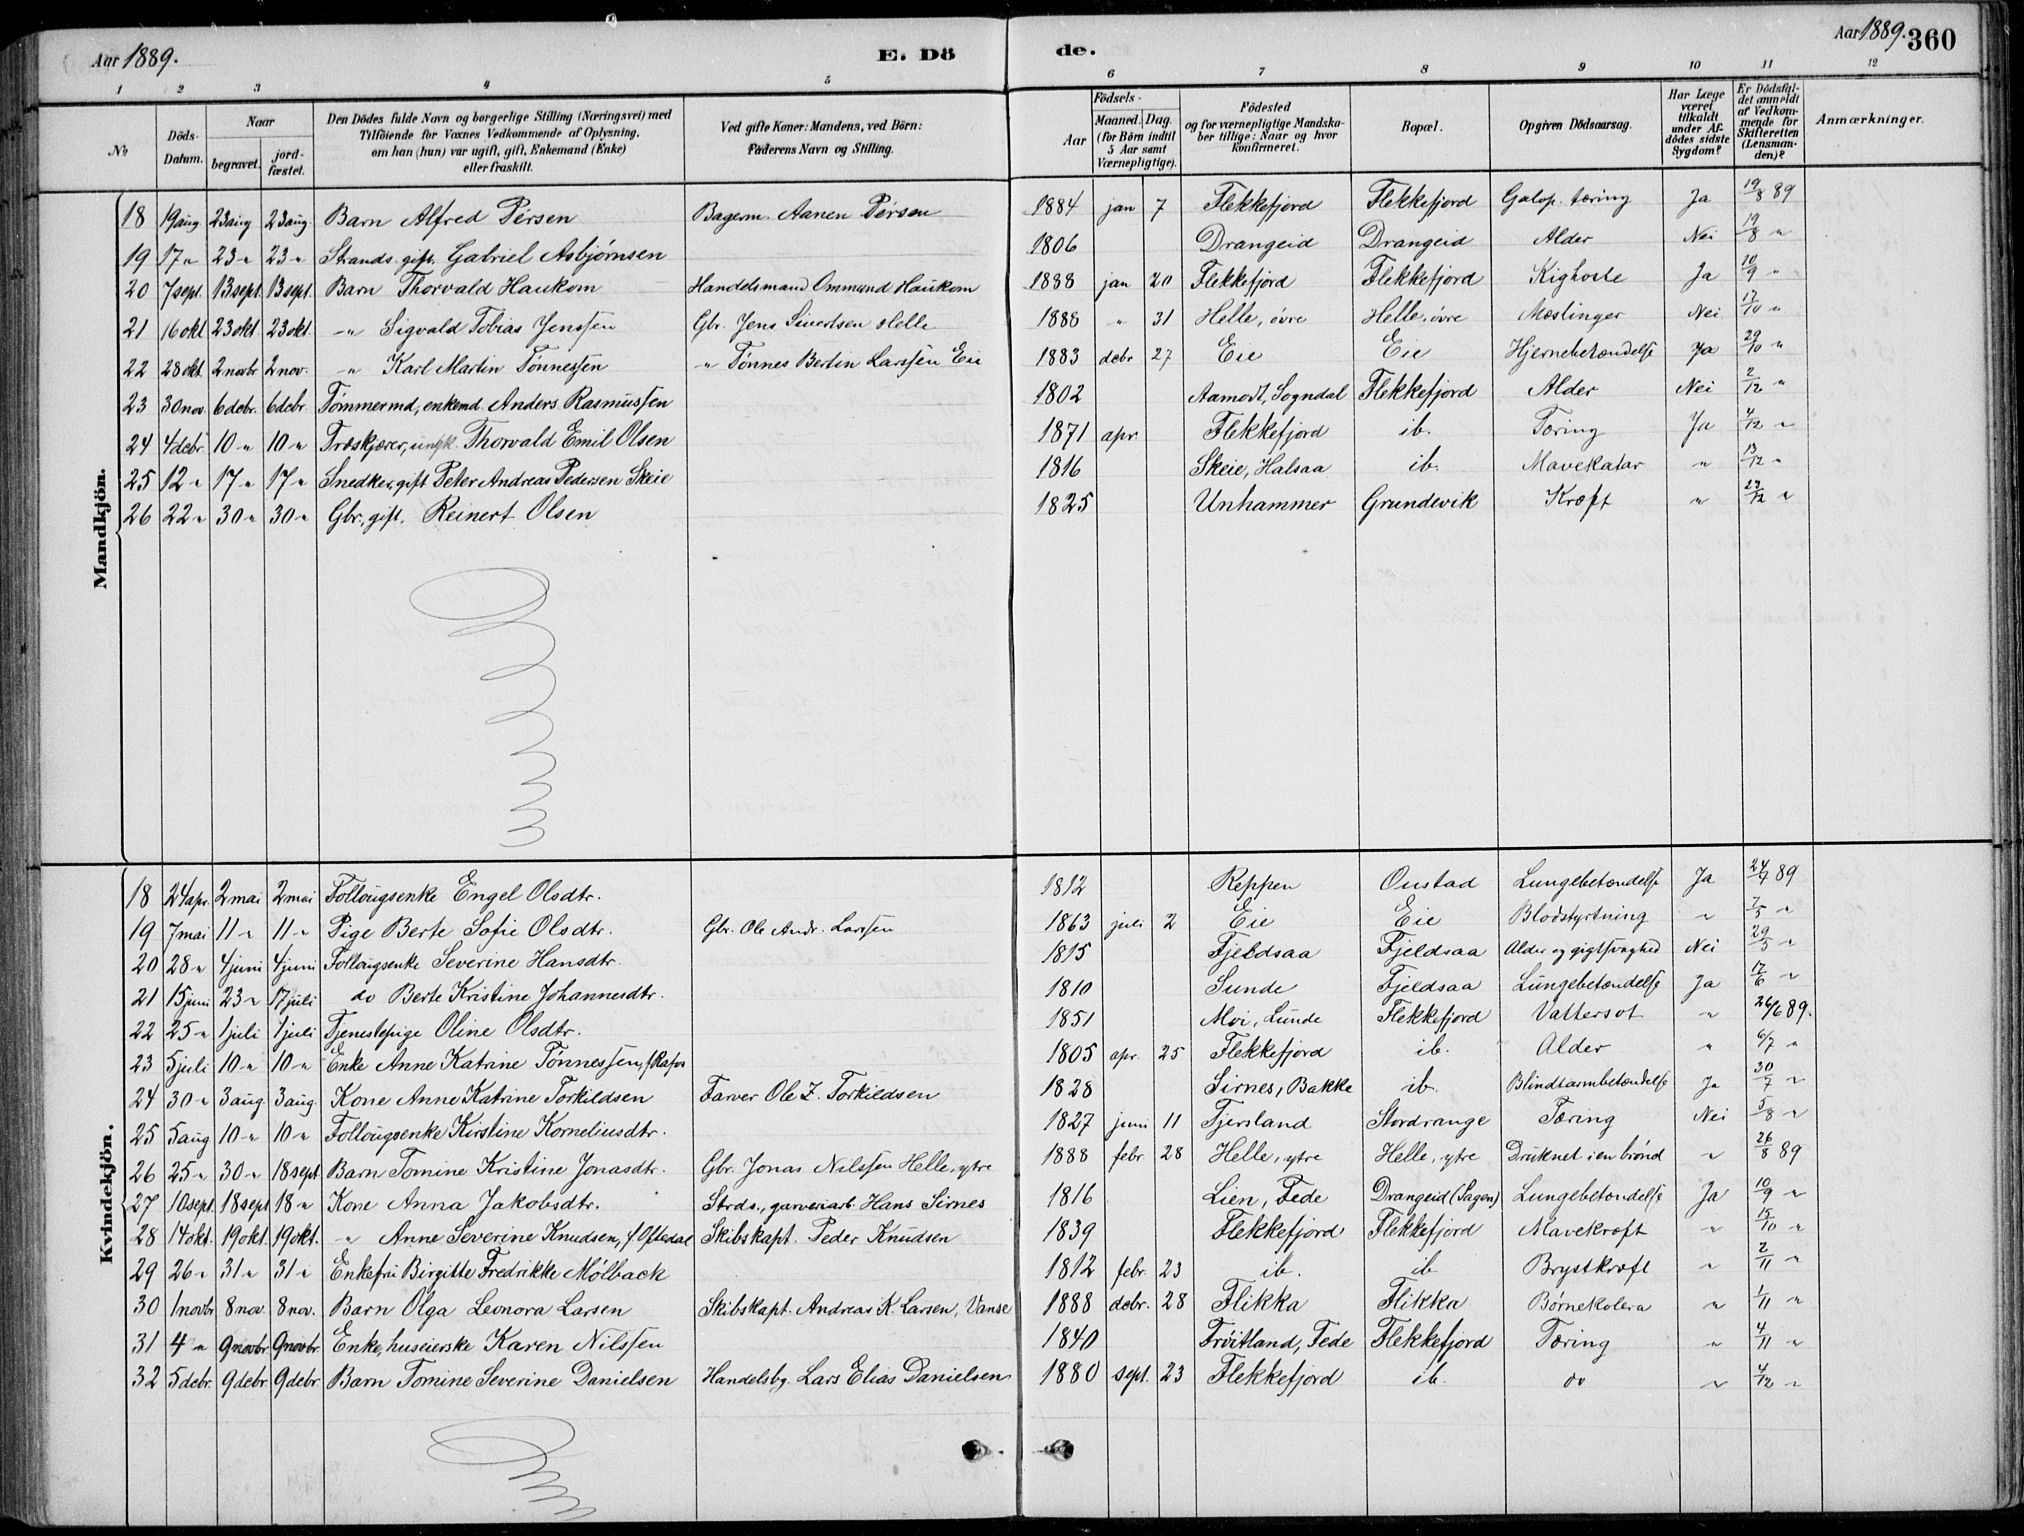 Aar 1889. E. Dö de. Aar 1889. 360
1 2 3 4 5 6 7 8 9 10 11 12
№ Döds-Datum. Naar begravet. jord-fæstet. Den Dödes fulde Navn og borgerlige Stilling (Næringsvei) med Tilföiende for Voxnes Vedkommende af Oplysning, om han (hun) var ugift, gift, Enkemand (Enke) eller fraskilt. Ved gifte Koner: Mandens, ved Börn: Faderens Navn og Stilling. Födsels- Aar Maaned. Dag. (for Börn indtil 5 Aar samt Værnepligtige). Födested og for værnepligtige Mandskaber tillige: Naar og hvor konfirmeret. Bopæl. Opgiven Dödsaarsag. Har Læge været tilkaldt under Afdödes sidste Sygdom? Er Dödsfaldet anmeldt af Vedkommende for Skifteretten (Lensmanden)? Anmærkninger.
Mandkjön.
18 19 aug. 23 aug 23 aug. Barn Alfred Persen Bagerm. Aanen Persen 1884 jan 7 Flekkefjord Flekkefjord Galop. tæring Ja 19/8 89
19 17 " 23 " 23 " Strands. gift. Gabriel Asbjørnsen 1806 Drangeid Drangeid Alder Nei 19/8 "
20 7 sept. 13 sept. 13 sept. Barn Thorvald Haukom Handelsmand Ommund Haukom 1888 jan 20 Flekkefjord Flekkefjord Kighoste Ja 10/9 "
21 16 okt 23 okt. 23 okt. " Sigvald Tobias Jenssen Gbr. Jens Sivertsen Helle 1888 " 31 Helle, övre Helle, övre Mæslinger Nei 17/10 "
22 28 okt. 2 novbr 2 nov. " Karl Martin Tønnessen " Tønnes Bertin Larssen Eie 1883 debr 27 Eie Eie Hjernebetændelse Ja 29/10 "
23 30 nov. 6 debr. 6 debr. Tømmermd, enkemd. Anders Rasmussen 1802 Aamodt, Sogndal Flekkefjord Alder Nei 2/12 "
24 4 debr. 10 " 10 " Træskjærer, ungk. Thorvald Emil Olsen 1871 apr. Flekkefjord ib. Tæring Ja 4/12 "
25 12 " 17 " 17 " Snedker, gift Peter Andreas Pedersen Skeie 1816 Skeie, Halsaa ib. Mavekatar " 13/12 "
26 22 " 30 " 30 " Gbr., gift. Reinert Olsen 1825 Unhammer Grundevik Kræft " 23/12 "
Kvindekjön.
18 24 apr. 2 mai 2 mai Follougsenke Engel Olsdtr. 1812 Reppen Oustad Lungebetændelse Ja 24/4 89
19 7 mai 11 " 11 " Pige Berte Sofie Olsdtr. Gbr. Ole Andr. Larssen 1863 juli 2 Eie Eie Blodstyrtning " 7/5 "
20 28 " 4 juni 4 juni Follougsenke Severine Hansdtr. 1815 Fjeldsaa Fjeldsaa Alder og gigtsvaghed Nei 29/5 "
21 15 juni 23 " 17 juli do Berte Kristine Johannesdtr. 1810 Sunde Fjeldsaa Lungebetændelse Ja 17/6 "
22 25 " 1 juli 1 juli Tjenestepige Oline Olsdtr. 1851 Moi, Lunde Flekkefjord Vattersot " 26/6 89.
23 5 juli 10 " 10 " Enke Anne Katrine Tønnessen, f Rafos 1805 apr. 25 Flekkefjord ib. Alder " 6/7 "
24 30 " 3 aug. 3 aug. Kone Anne Katrine Torkildsen Farver Ole Z. Torkildsen 1828 Sirnes, Bakke ib. Blindtarmbetændelse Ja 30/7 "
25 5 aug 10 " 10 " Follougsenke Kirstine Korneliusdtr. 1827 juni 11 Tjersland Stordrange Tæring Nei 5/8 "
26 25 " 30 " 18 sept Barn Tomine Kristine Jonasdtr. Gbr. Jonas Nilssen Helle, ytre 1888 febr. 28 Helle, ytre Helle, ytre Druknet i en brønd " 26/8 89
27 10 sept. 18 sept 18 " Kone Anna Jakobsdtr. Strds., garveriarb. Hans Sirnes 1816 Lien, Fede Drangeid (Sagen) Lungebetændelse Ja 10/9 "
28 14 okt. 19 okt. 19 okt. " Anne Severine Knudsen, f Oftedal Skibskapt. Peder Knudsen 1839 Flekkefjord Flekkefjord Mavekræft " 15/10 "
29 26 " 31 " 31 " Enkefru Birgitte Fredrikke Mølback 1812 febr. 23 ib. ib Brystkræft " 2/11 "
30 1 novbr 8 nov. 8 nov. Barn Olga Leonora Larsen Skibskapt. Andreas K. Larsen, Vanse 1888 debr. 28 Flikka Flikka Børnekolera " 1/11 "
31 4 " 9 novbr 9 novbr Enke, huseierske Karen Nilssen 1840 Frøitland, Fede Flekkefjord Tæring " 4/11 "
32 5 debr. 9 debr 9 debr. Barn Tomine Severine Danielsen Handelsbg. Lars Elias Danielsen 1880 sept. 23 Flekkefjord ib. do " 4/12 "